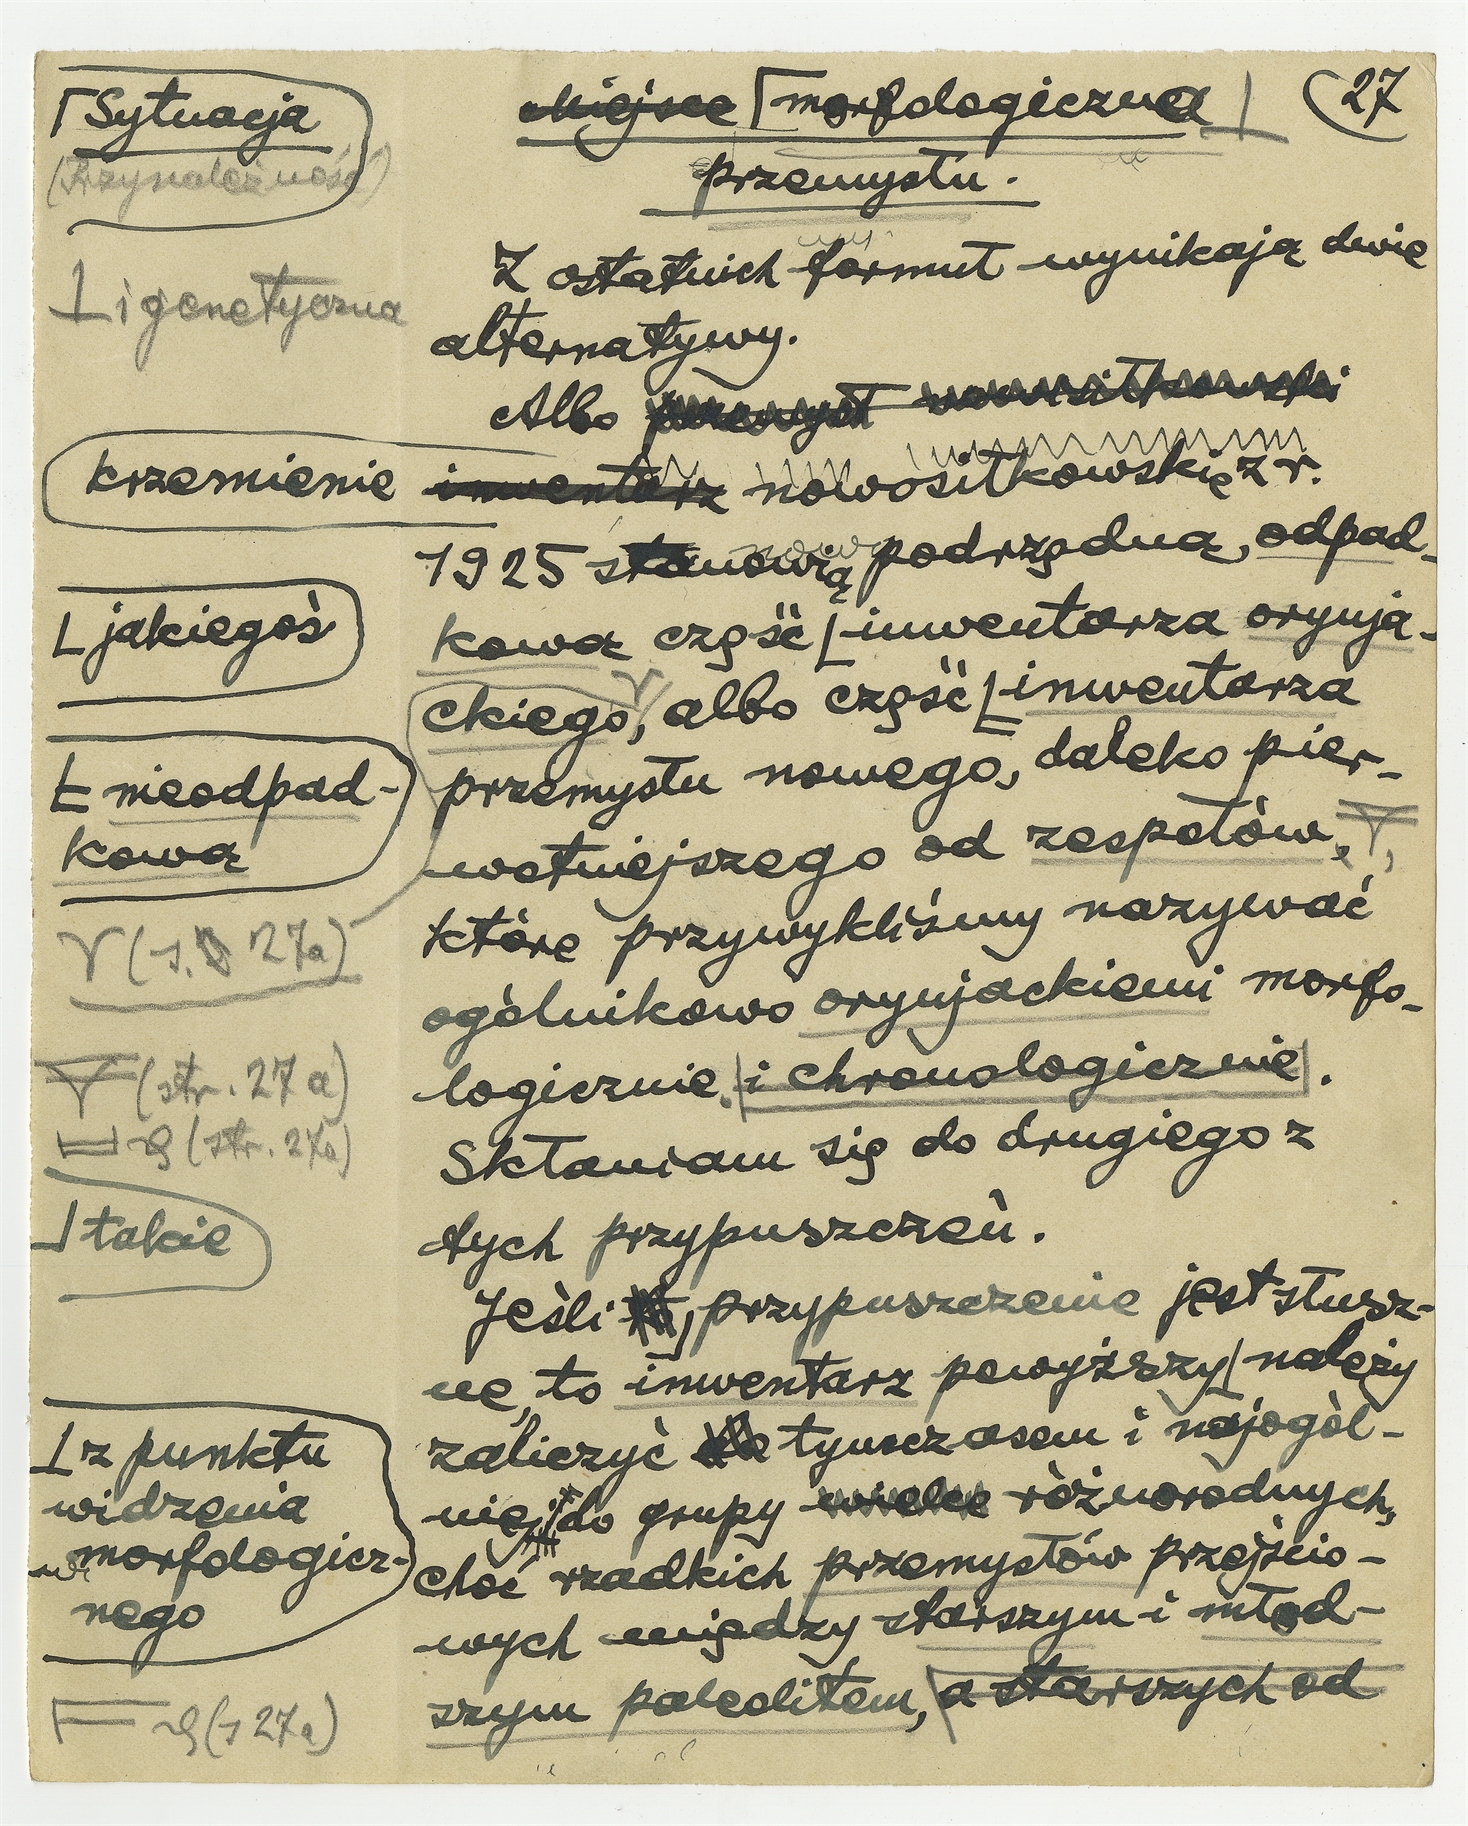 ⌈Sytuacja
(Przynależność)
⊥ i genetyczna
krzemienie
⌊ jakiegoś
nieodpad-
kową
(s. 27a)
(str. 27a)
(str. 27a)
⌋ takie
⊥ z punktu
widzenia
morfologicz-
nego
(s 27a)
27
Miejsce ⌈morfologiczna
przemysłu.
Z ostatnich formuł wynikają dwie
alternatywy.
Albo przemysł nowosiłkowski
inwentarz nowosiłkowskie z r.
1925 stanowią podrzędną, odpad-
kową część ⌊ inwentarza orynja-
ckiego, albo część inwentarza
przemysłu nowego, daleko pier-
wotniejszego od zespołów,
które przywykliśmy nazywać
ogólnikowo orynjackiemi morfo-
logicznie. i chronologicznie.
Skłaniam się do drugiego z
tych przypuszczeń.
Jeśli przypuszczenie jest słusz-
ne, to inwentarz powyższy należy
zaliczyć tymczasem i najogól-
niej do grupy wielce różnorodnych,
choć rzadkich przemysłów przejścio-
wych między starszym i młod-
szym paleolitem, a starszych od